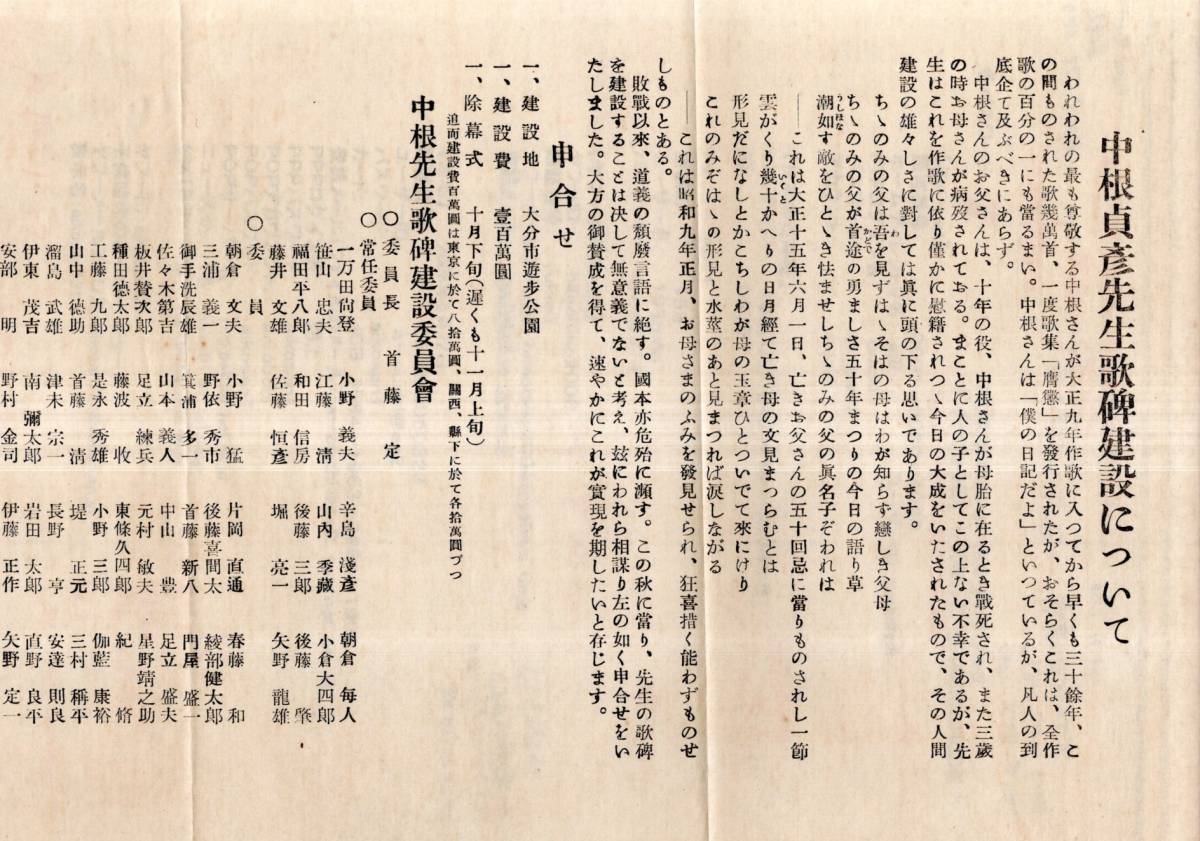 中根貞彥先生歌碑建設について
われわれの最も尊敬する中根さんが大正九年作歌に入つてから早くも三十餘年、こ
の間ものされた歌幾萬首、一度歌集「膺懲」を發行されたが、おそらくこれは、全作
歌の百分の一にも當るまい。中根さんは「僕の日記だよ」といつているが、凡人の到
底企て及ぶべきにあらず。
中根さんのお父さんは、十年の役、中根さんが母胎に在るとき戰死され、また三歲
の時お母さんが病歿されておる。まことに人の子としてこの上ない不幸であるが、先
生はこれを作歌に依り僅かに慰藉されつゝ今日の大成をいたされたもので、その人間
建設の雄々しさに對しては眞に頭の下る思いであります。
ちゝのみの父は吾を見ずはゝそはの母はわが知らず戀しき父母
ちゝのみの父が首途の勇ましさ五十年まつりの今日の語り草
潮如す敵をひとゝき怯ませしちゝのみの父の眞名子ぞわれは
――これは大正十五年六月一日、亡きお父さんの五十回忌に當りものされし一節
雲がくり幾十かへりの日月經て亡き母の文見まつらむとは
形見だになしとかこちしわが母の玉章ひとついでて來にけり
これのみぞはゝの形見と水莖のあと見まつれば淚しながる
――これは昭和九年正月、お母さまのふみを發見せられ、狂喜措く能わずものせ
しものとある。
敗戰以來、道義の頽廢言語に絕す。國本亦危殆に瀕す。この秋に當り、先生の歌碑
を建設することは決して無意義でないと考え、玆にわれら相謀り左の如く申合せをい
たしました。大方の御賛成を得て、速やかにこれが實現を期したいと存じます。
申合せ
一、建設地 大分市遊步公園
一、建設費 壹百萬圓
一、除幕式 十月下旬(遲くも十一月上旬)
追而建設費百萬圓は東京に於て八拾萬圓、關西、縣下に於て各拾萬圓づつ
中根先生歌碑建設委員會
○委員長 首藤定
○常任委員
一万田尙登 小野義夫 辛島淺彥 朝倉每人
笹山忠夫 江藤淸 山內季藏 小倉大四郎
福田平八郎 和田信房 後藤三郎 後藤肇
藤井文雄 佐藤恒彥 堀亮一 矢野龍雄
○委員
朝倉文夫 小野猛 片岡直通 春藤和
三浦義一 野依秀市 後藤喜間太 綾部健太郎
御手洗辰雄 箕浦多一 首藤新八 門屋盛一
佐々木第吉 山本義人 中山豊 足立盛夫
板井賛次郎 足立練兵 元村敏夫 星野靖之助
種田德太郎 藤波收 東條久四郎 紀脩
工藤九郎 是永秀雄 小野三郎 伽藍康裕
山中德助 首藤淸 堤正元 三村稱平
溜島武雄 津末宗一 長野亨 安達則良
伊東茂吉 南彌太郎 岩田太郎 直野良平
安部明 野村金司 伊藤正作 矢野定一